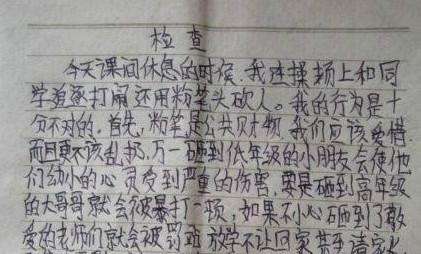 检查
今天课间休息的时候,我在操场上和同
学追逐打闹还用粉笔头砍人。我的行为是十
分不对的,首先,粉笔是公共财物,我们应该爱惜
而且更不该乱扔,万一砸到低年级的小朋友会使他
们幼小的心灵受到严重的伤害,要是砸到高年级
的大哥哥就会被暴打一顿,如果不小心砸到了敬
爱的老师们就会被罚站 放学不让回家 甚至请家长